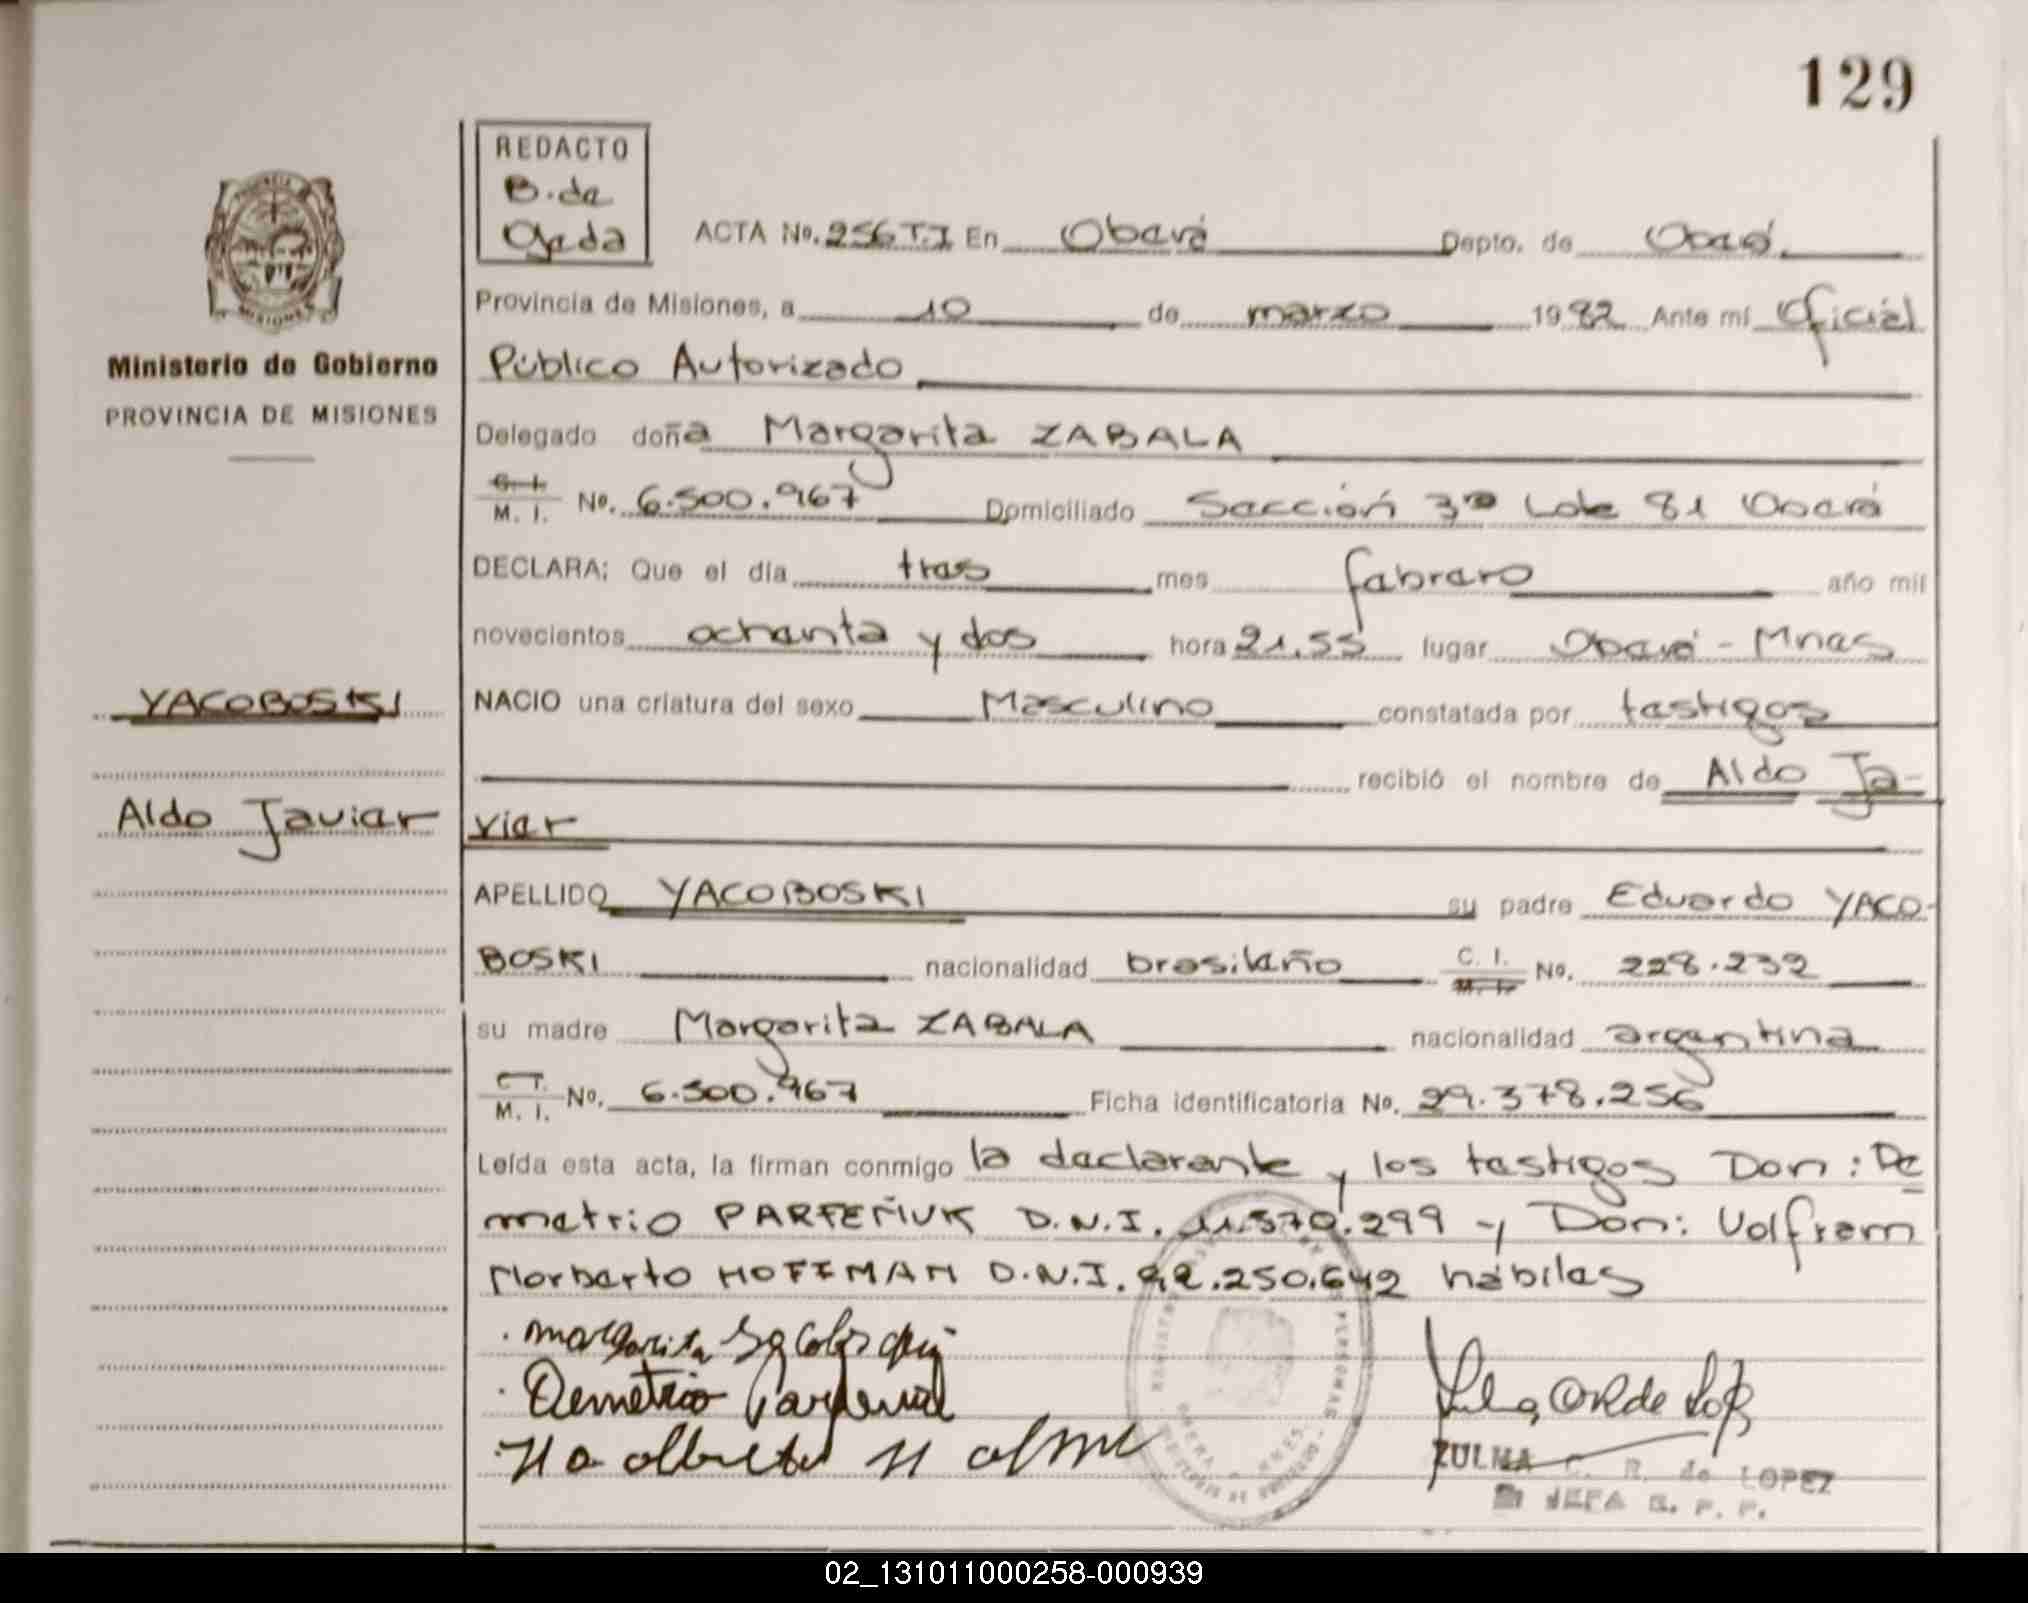 129
REDACTO
B. de
Ojeda
ACTA No. 256 T.I En Oberá Depto. de Oberá
Provincia de Misiones, a 10 de marzo 1982 Ante mí Oficial
Público Autorizado
Delegado doña Margarita ZABALA
C. I. M. I. No. 6.500.967 Domiciliado Sección 3ª Lote 81 Oberá
DECLARA: Que el día tres mes febrero año mil
novecientos ochenta y dos hora 21,55 lugar Oberá - Mnes
NACIO una criatura del sexo Masculino constatada por testigos
recibió el nombre de Aldo Ja-
vier
APELLIDO YACOBOSKI su padre Eduardo YACO-
BOSKI nacionalidad brasileño C. I. M. I. No. 228.232
su madre Margarita ZABALA nacionalidad argentina
C. I. M. I. No. 6.500.967 Ficha identificatoria No. 29.378.256
Leída esta acta, la firman conmigo la declarante y los testigos Don: De
metrio PARFEÑUK D.N.I. 11.570.299 y Don: Volfram
Norberto HOFFMAN D.N.I. 92.250.642 hábiles
Margarita
Demetrio
ZULMA C. R. de LOPEZ
JEFA R. P. P.
PROVINCIA
MISIONES
Ministerio de Gobierno
PROVINCIA DE MISIONES
YACOBOSKI
Aldo Javier
02_131011000258-000939